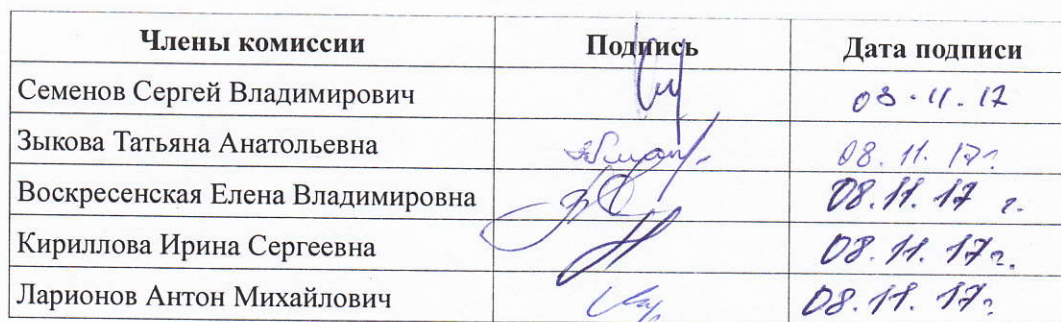 Члены комиссии Подпись Дата подписи
Семенов Сергей Владимирович 08.11.17
Зыкова Татьяна Анатольевна 08.11.17г.
Воскресенская Елена Владимировна 08.11.17 г.
Кириллова Ирина Сергеевна 08.11.17г.
Ларионов Антон Михайлович 08.11.17г.